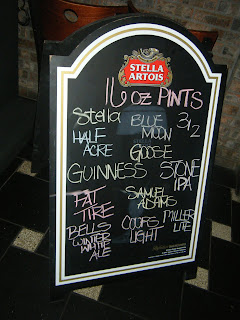 STELLA
ARTOIS
16 oz PINTS
Stella BLUE 312
HALF MOON
ACRE GOOSE
GUINNESS STONE
IPA
FAT SAMUEL
TIRE ADAMS
BELLS COORS MILLER
WINTER LIGHT LITE
WHITE
ALE